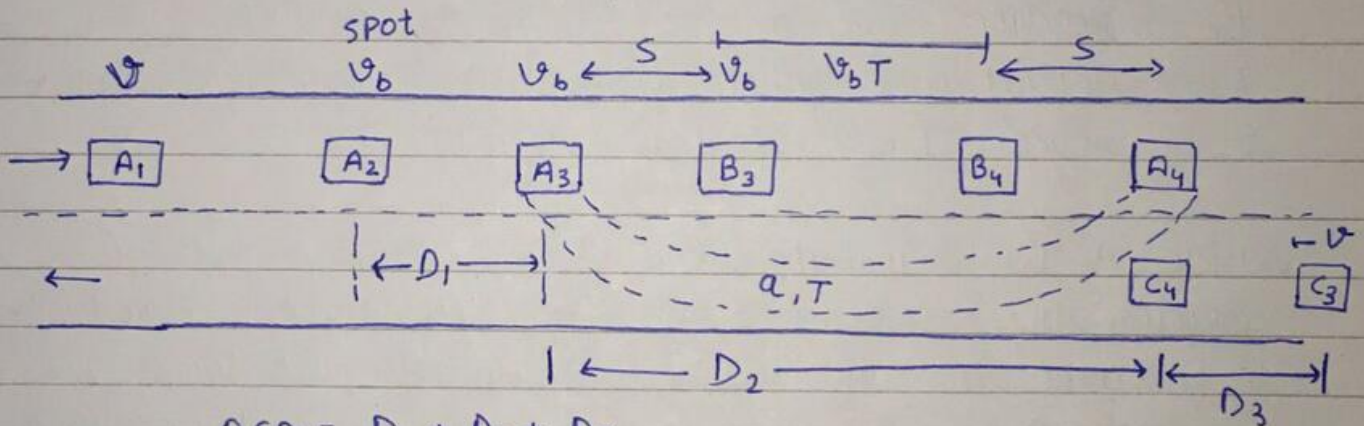 spot
v v_b v_b S v_b v_b T S
A₁ A₂ A₃ B₃ B₄ A₄
v
D₁ a, T C₄ C₃
D₂ D₃